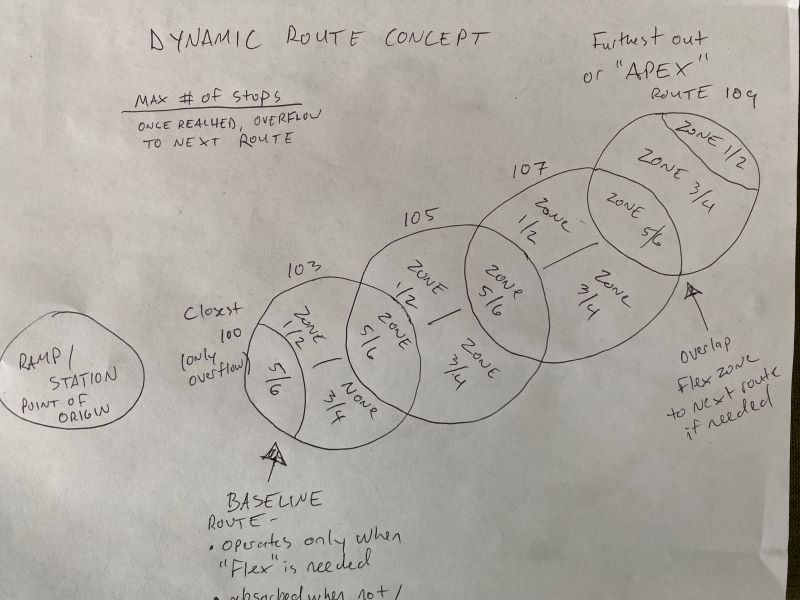 DYNAMIC ROUTE CONCEPT
MAX # of Stops
ONCE REACHED, OVERFLOW
TO NEXT ROUTE
Furthest out
or "APEX"
ROUTE 109
ZONE 1/2
ZONE 3/4
ZONE 5/6
107
ZONE
1/2
ZONE
3/4
ZONE
5/6
105
ZONE
1/2
ZONE
3/4
ZONE
5/6
103
ZONE
1/2
NONE
3/4
5/6
Closest
100
(only
overflow)
RAMP/
STATION
POINT OF
ORIGIN
overlap
Flex zone
to next route
if needed
BASELINE
ROUTE -
• operates only when
"Flex" is needed
• absorbed when not/